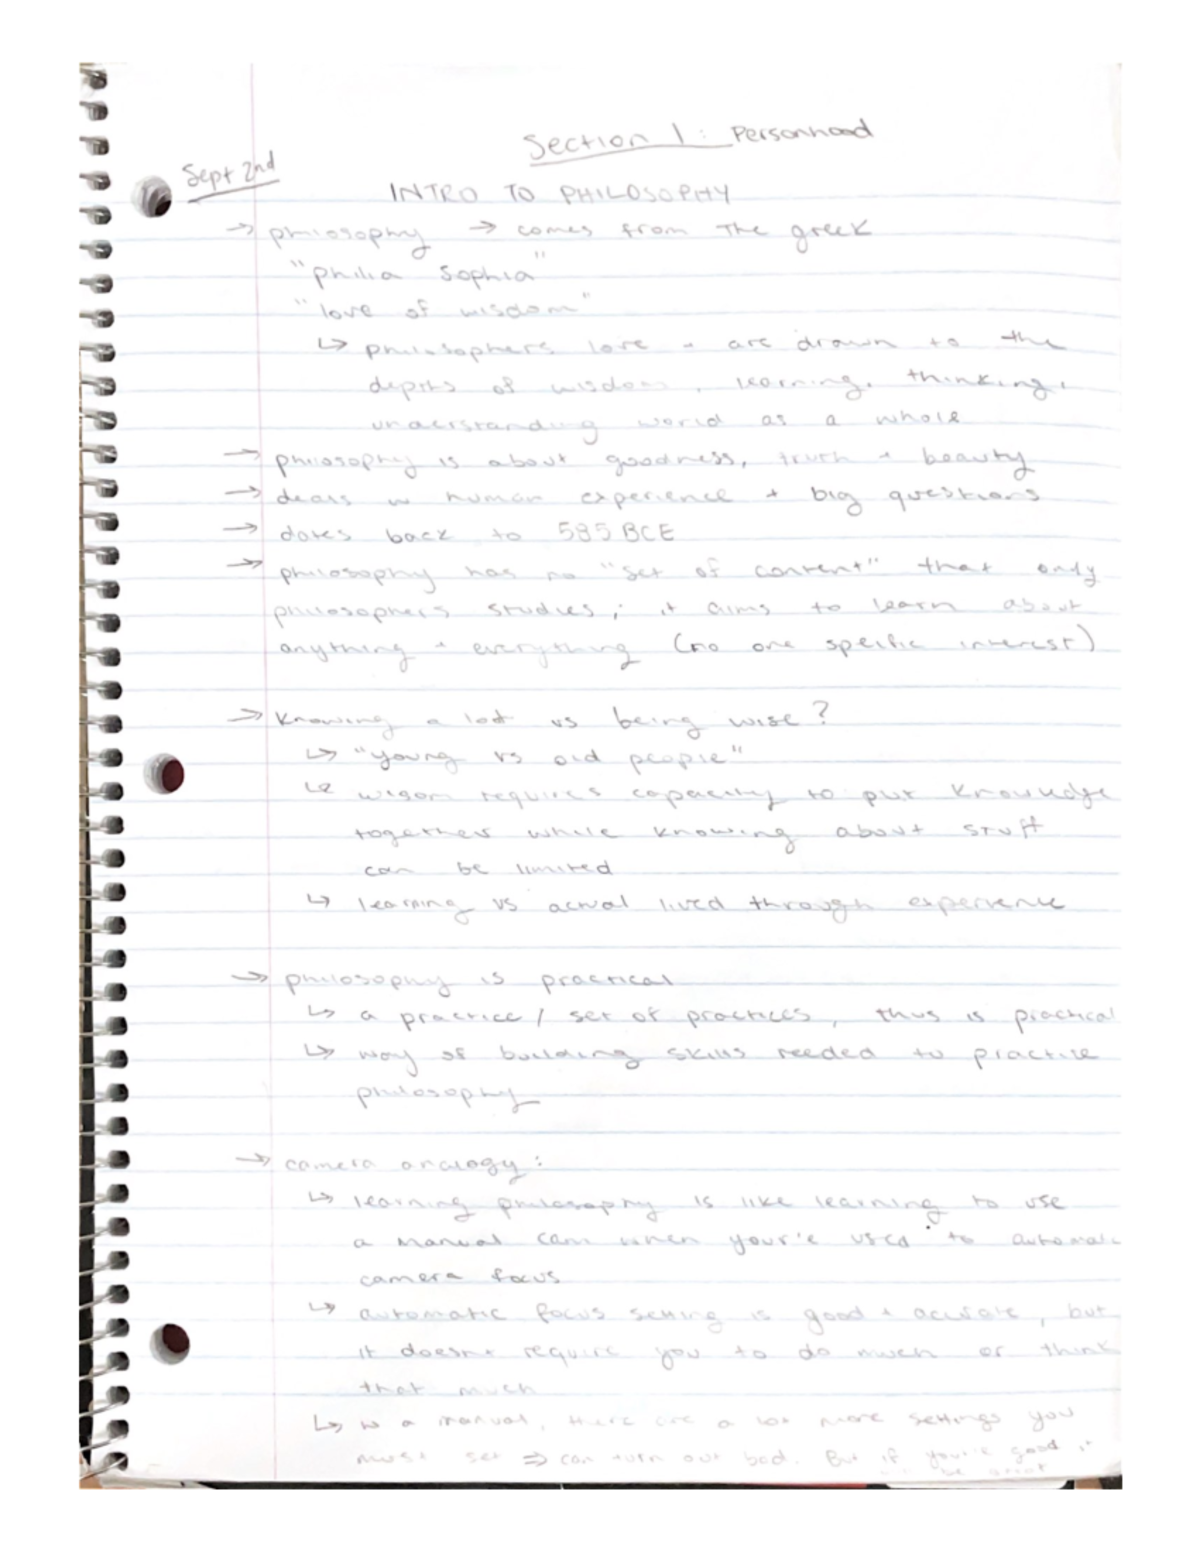 Section 1: Personhood
Sept 2nd
INTRO TO PHILOSOPHY
→ philosophy → comes from the greek
"philia sophia"
"love of wisdom"
↳ philosophers love + are drawn to the
depths of wisdom, learning, thinking,
understanding world as a whole
→ philosophy is about goodness, truth + beauty
→ deals w human experience + big questions
→ dates back to 585 BCE
→ philosophy has no "set of content" that only
philosophers studies; it aims to learn about
anything + everything (no one specific interest)
→ knowing a lot vs being wise?
↳ "young vs old people"
↳ wisom requires capacity to put knowledge
together while knowing about stuff
can be limited
↳ learning vs actual lived through experience
→ philosophy is practical
↳ a practice / set of practices, thus is practical
↳ way of building skills needed to practice
philosophy
→ camera analogy:
↳ learning philosophy is like learning to use
a manual cam when your'e used to automatic
camera focus
↳ automatic focus setting is good + accurate, but
it doesnt require you to do much or think
that much
↳ w a manual, there are a lot more settings you
must set ⇒ can turn out bad. But if you're good it
be great